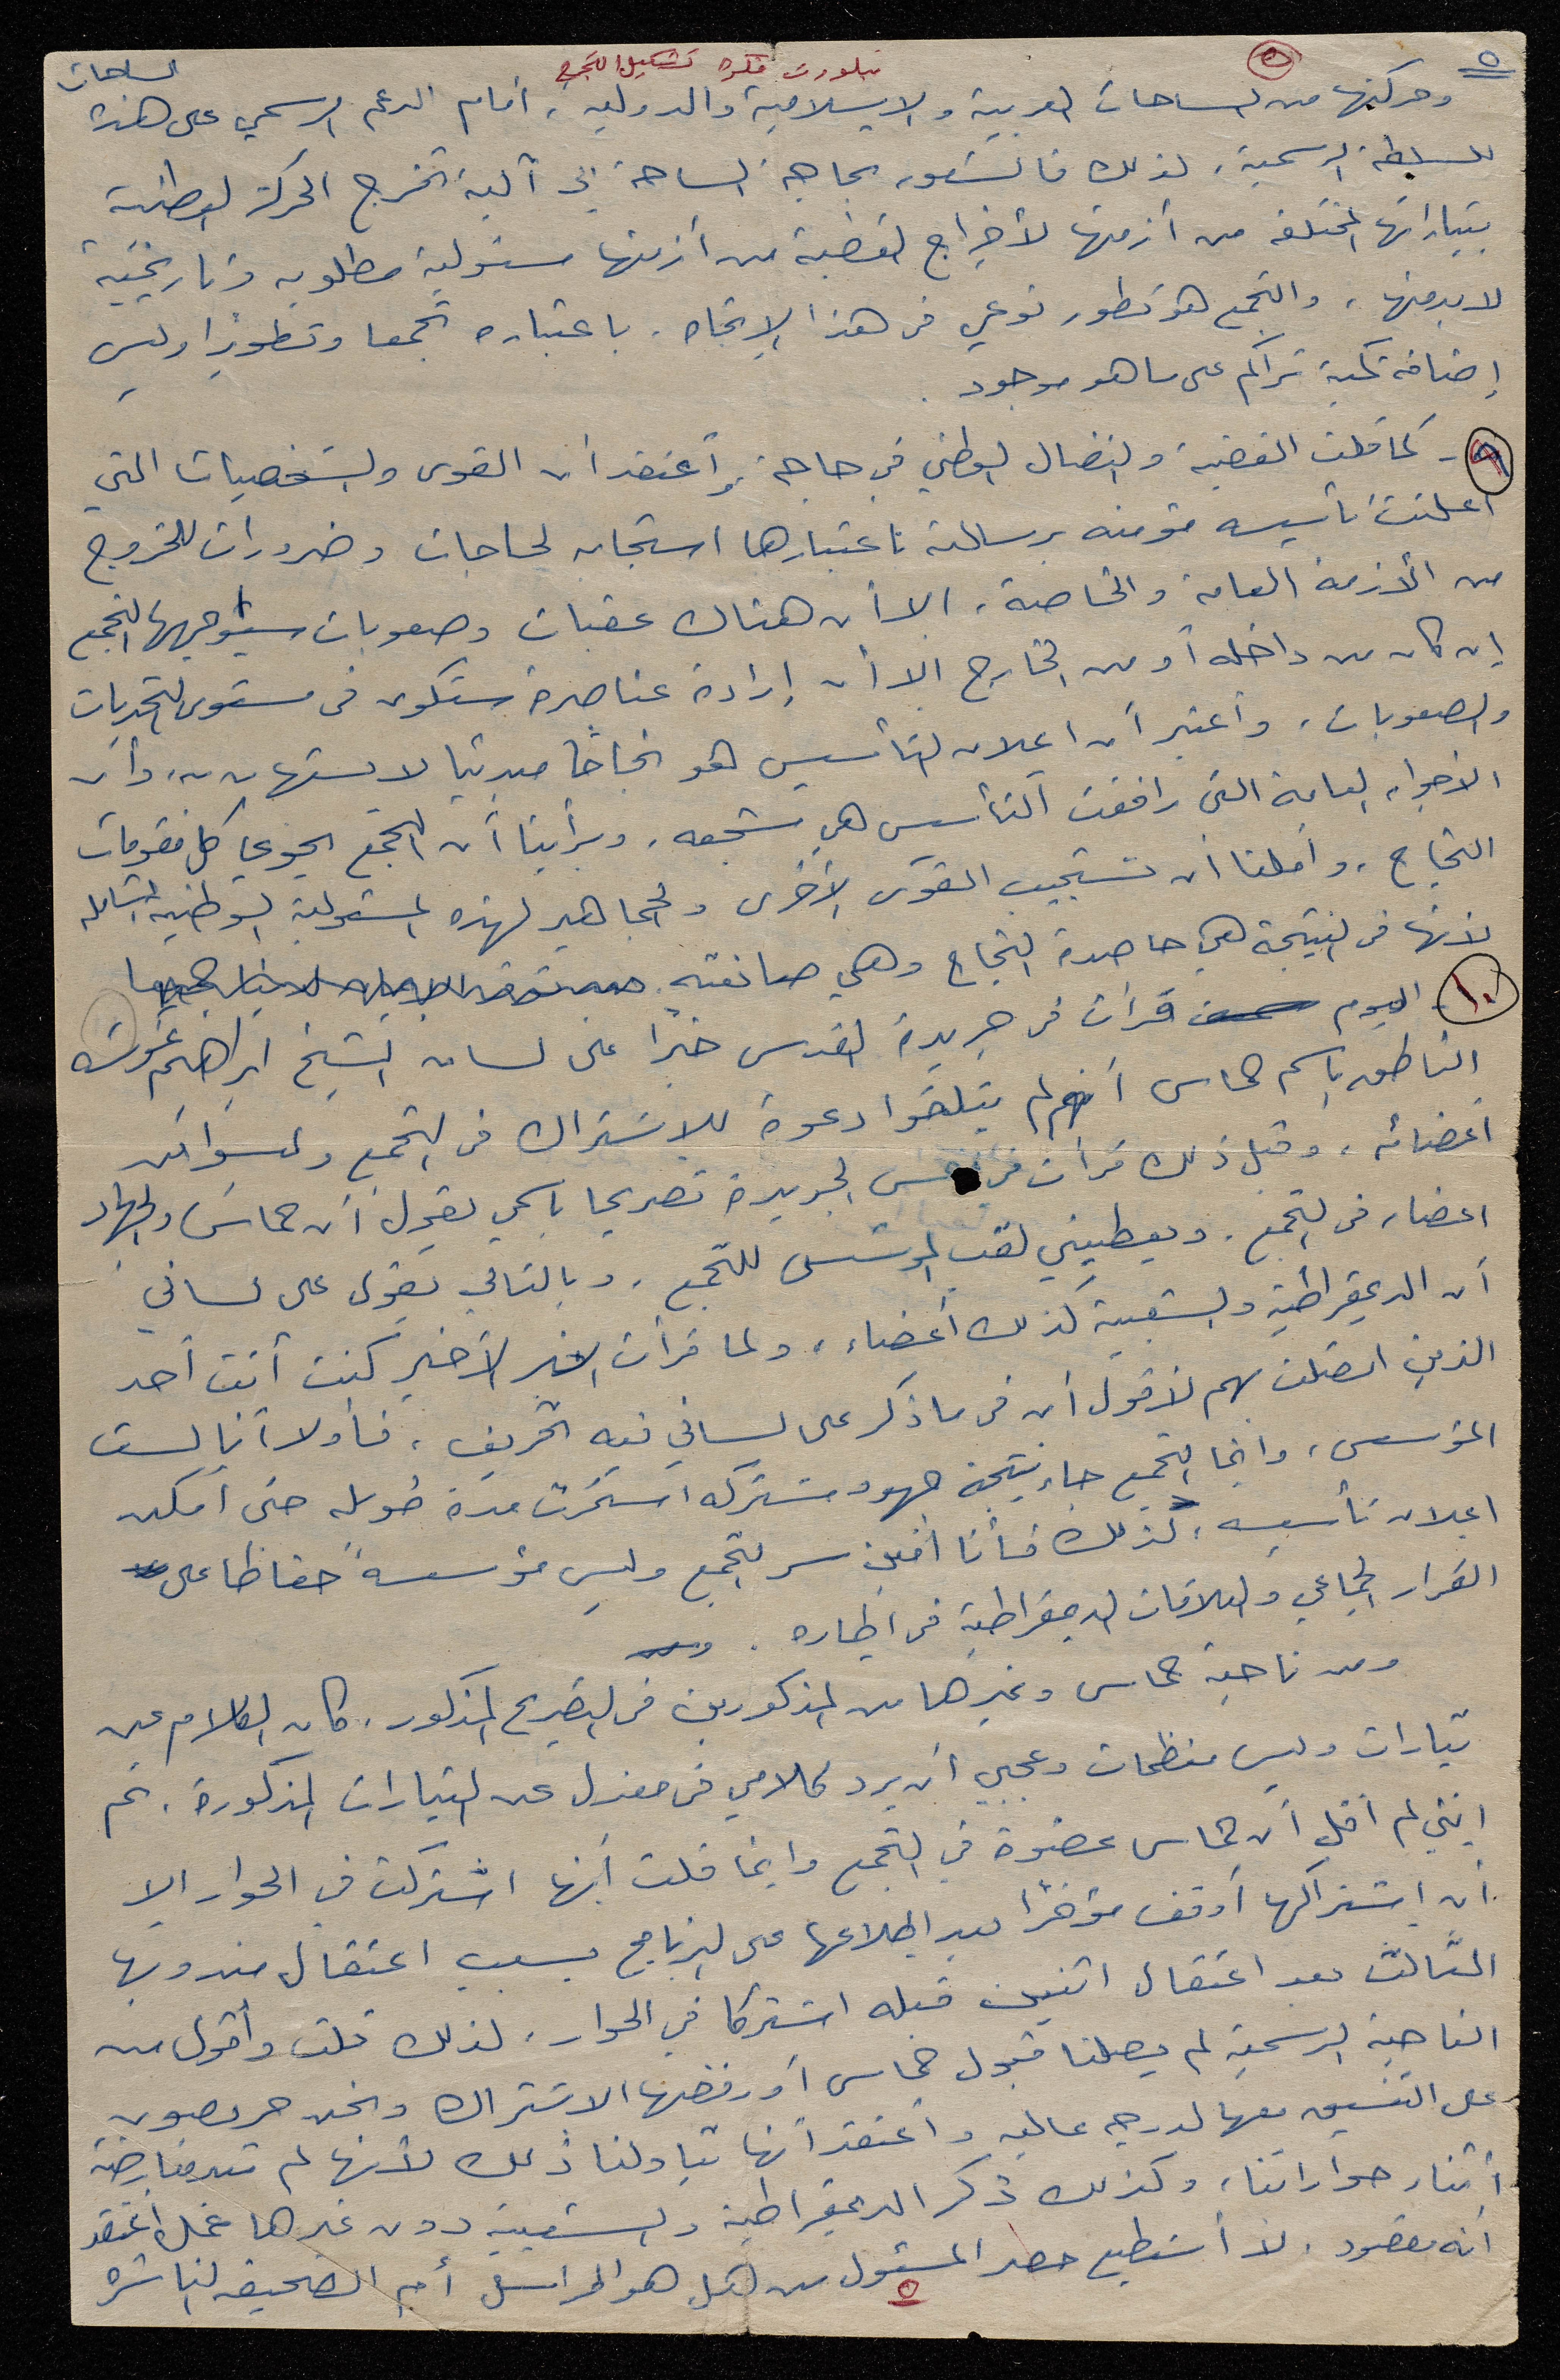 ٥
٥
تبلورت فكرة تشكيل التجمع
الساحات
وحركتها من الساحات العربية والإسلامية والدولية، أمام الدعم الرسمي على هذه
للسلطة الرسمية، لذلك فالشعور بحاجة الساحة إلى آلية تخرج الحركة الوطنية
بتياراتها المختلفة من أزمتها لأخراج القضية من أزمتها مسئولية مطلوبه وتاريخية
لابد منها، والتجمع هو تطور نوعي في هذا الإتجاه، باعتباره تجمعا وتطويرا وليس
إضافة كمية تراكم على ما هو موجود.
٩- كما قلت القضية والنضال الوطني في حاجة، وأعتقد أن القوى والشخصيات التي
أعلنت تأسيسه مؤمنه برسالته باعتبارها استجابه لحاجات وضرورات للخروج
من الأزمة العامة والخاصة، الا أن هناك عقبات وصعوبات سيواجهها التجمع
إن كان من داخله أو من الخارج الا أن إرادة عناصره ستكون في مستوى التحديات
والصعوبات، وأعتبر أن اعلان التأسيس هو نجاحا مبدئيا لا يستهان به، وأن
الأجواء العامة التي رافقت التأسيس هي مشجعه، وبرأينا أن التجمع يحوي كل مقومات
النجاح، وأملنا أن تستجيب القوى الأخرى والجماهير لهذه المسئولية الوطنية الشاملة
لأنها في النتيجة هي حاصدة النجاح وهي صانعته.
١٠- اليوم قرأت في جريدة القدس خبرا على لسان الشيخ ابراهيم غوشه
الناطق باسم حماس أنهم لم يتلقوا دعوة للاشتراك في التجمع وليسوا من
أعضائه، وقبل ذلك قرأت في نفس الجريدة تصريحا باسمي يقول أن حماس والجهاد
اعضاء في التجمع، ويعطيني لقب المؤسس للتجمع، وبالتالي يقول على لساني
أن الديمقراطية والشعبية كذلك أعضاء، ولما قرأت الخبر الأخير كنت أنت أحد
الذين اتصلت بهم لأقول أن في ما ذكر على لساني فيه تحريف، فأولا أنا لست
المؤسس، وانما التجمع جاء نتيجة جهود مشتركه استمرت مدة طويله حتى أمكن
اعلان تأسيسه، كذلك فأنا أمين سر التجمع وليس مؤسسه حفاظا على
القرار الجماعي والعلاقات الديمقراطية في اطاره.
ومن ناحية حماس وغيرها من المذكورين في التصريح المذكور، كان الكلام عن
تيارات وليس منظمات وعجبي أن يرد كلامي في معزل عن التيارات المذكورة، ثم
إنني لم أقل أن حماس عضوة في التجمع وإنما قلت أنها اشتركت في الحوار إلا
أن اشتراكها أوقف مؤخرا بعد إطلاعها على البرنامج بسبب اعتقال مندوبها
الثالث بعد اعتقال اثنين قبله اشتركا في الحوار، لذلك قلت وأقول من
الناحية الرسمية لم يصلنا قبول حماس أو رفضها الاشتراك ونحن حريصون
على التنسيق معها لدرجة عالية وأعتقد أنها تبادلنا ذلك لأنها لم تبد معارضة
أثناء حواراتنا، وكذلك ذكر الديمقراطية والشعبية دون غيرها عمل أعتقد
أنه مقصود، لا أستطيع حصر المسئول من هل هو المراسل أم الصحيفه الناشره
٥